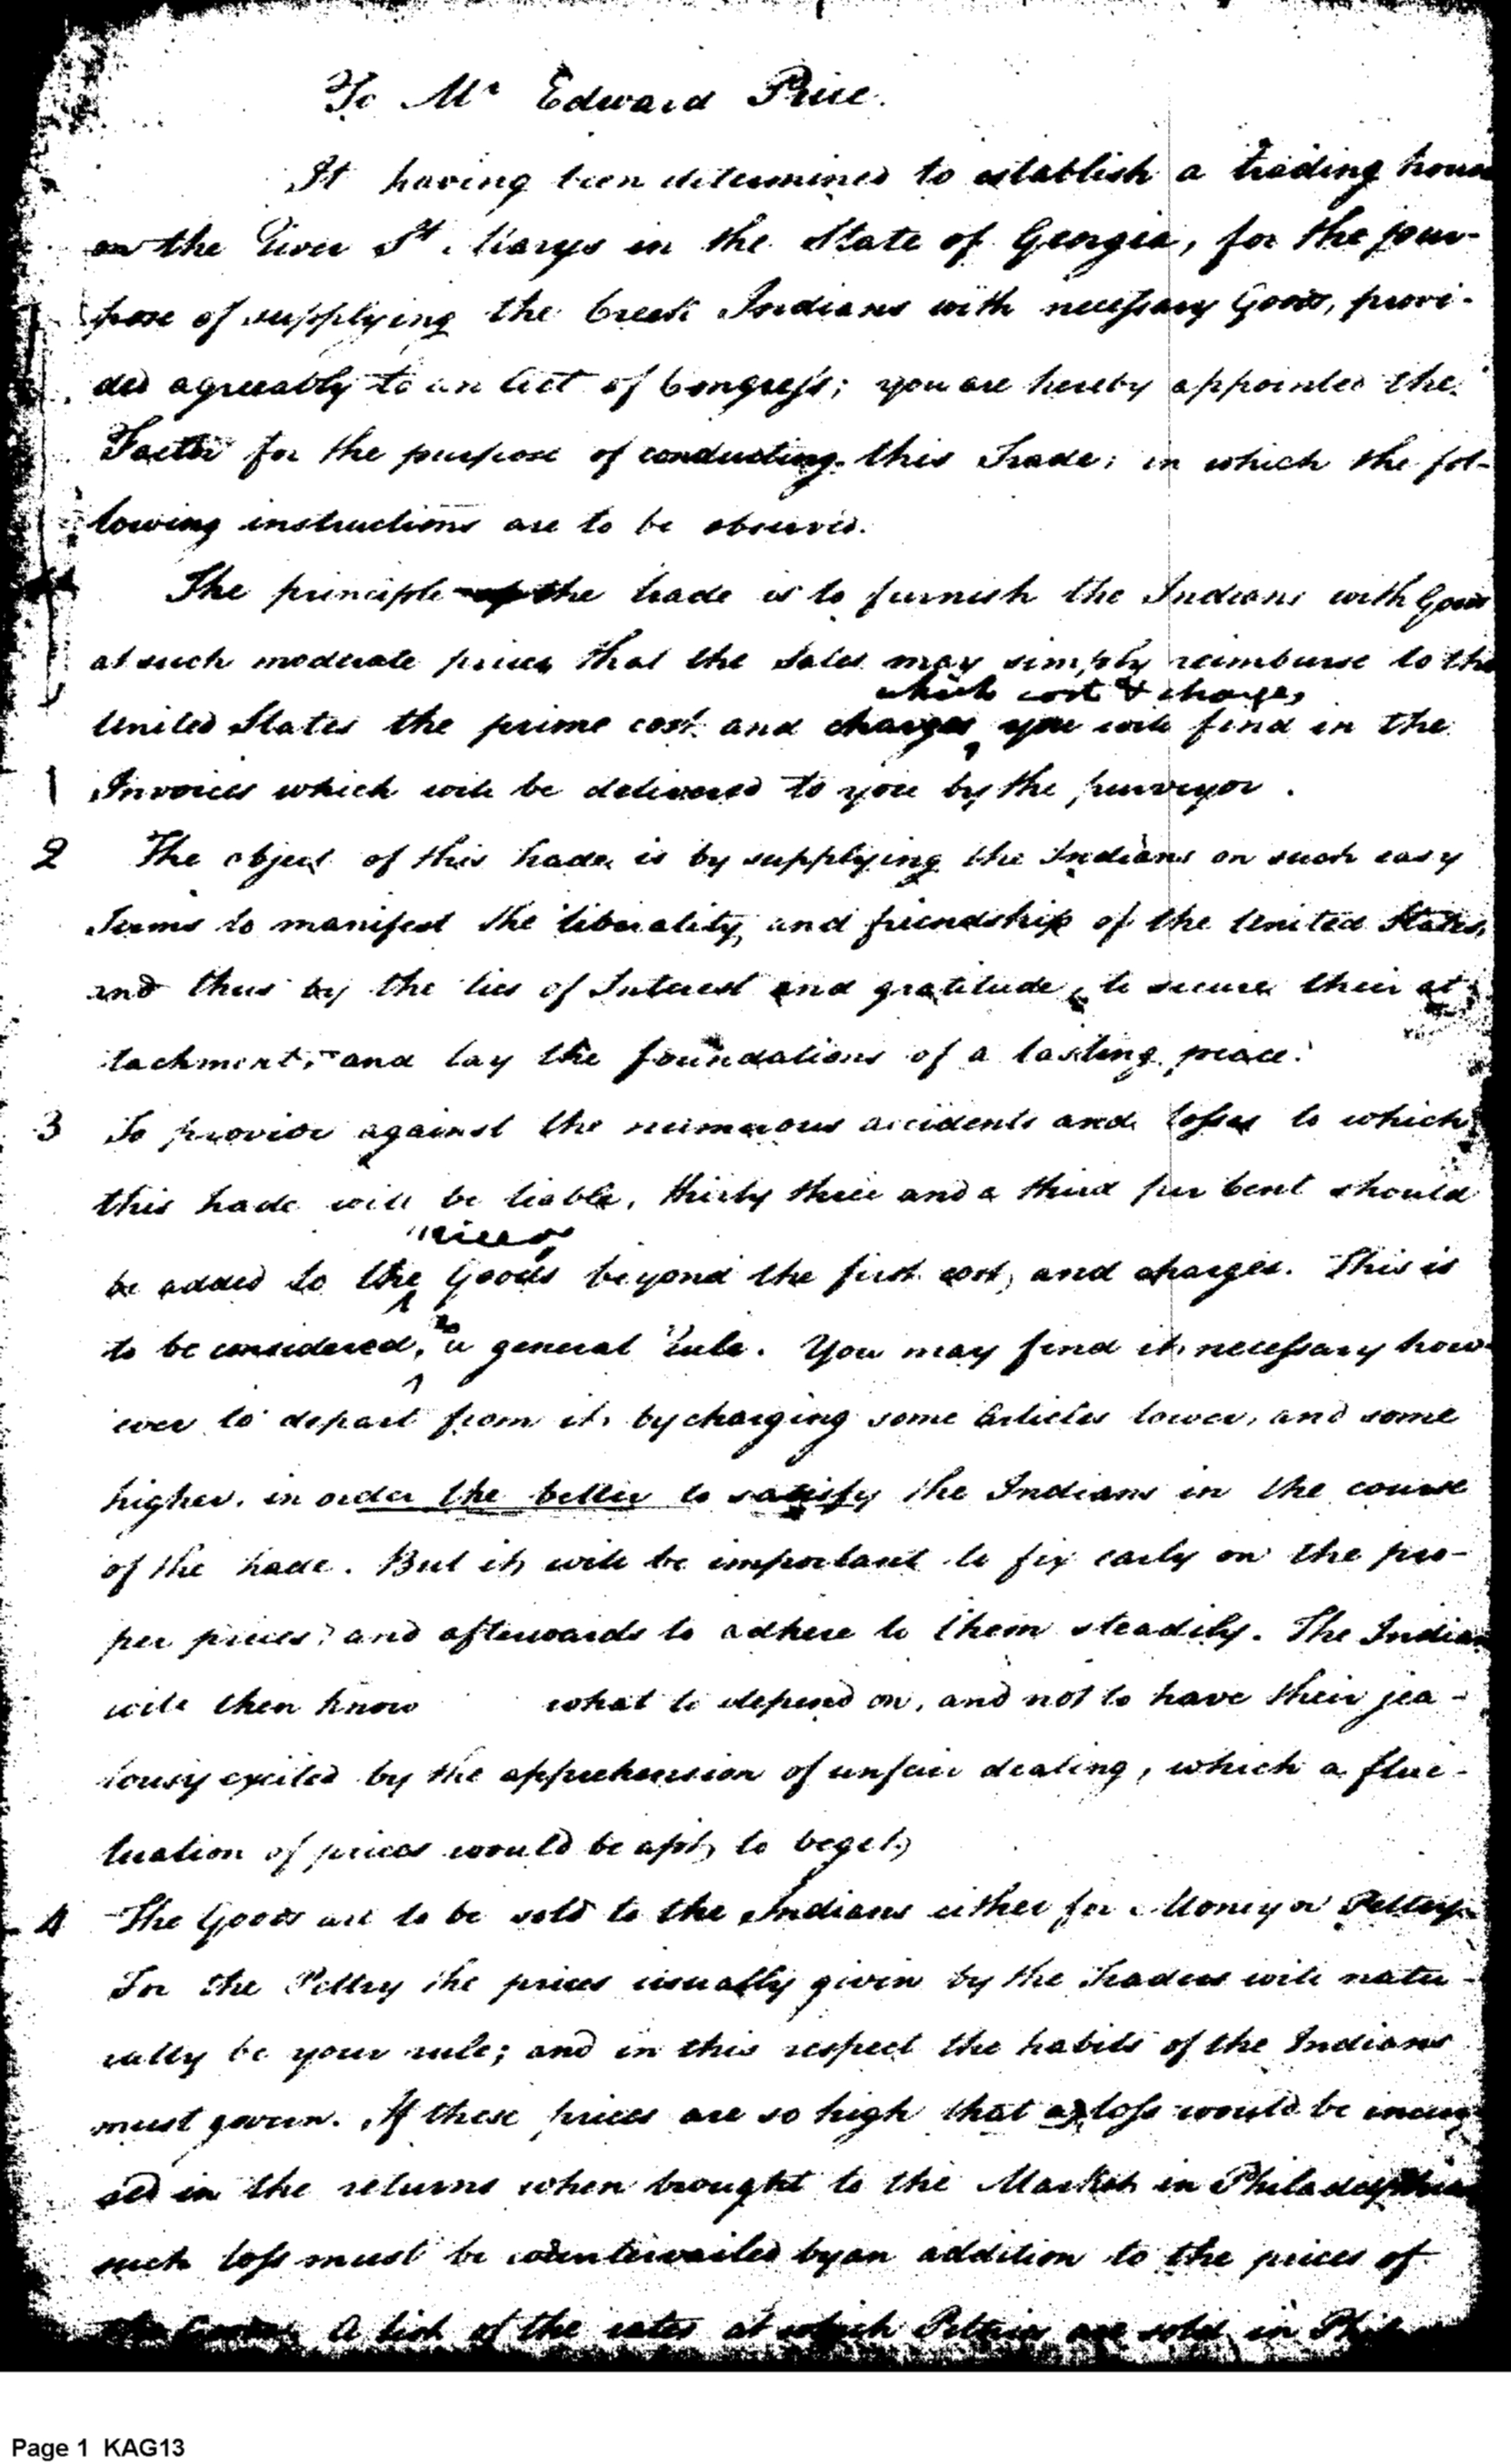 To Mr Edward Price.
It having been determined to establish a trading house
on the River St. Marys in the State of Georgia, for the pur-
pose of supplying the Creek Indians with necessary Goods, provi-
ded agreeably to an Act of Congress; you are hereby appointed the
Factor for the purpose of conducting this Trade; in which the fol-
lowing instructions are to be observed.
The principle of the trade is to furnish the Indians with Goods
at such moderate prices that the Sales may simply reimburse to the
which cost & charges
United States the prime cost and charges, you will find in the
1 Invoices which will be delivered to you by the purveyor.
2 The object of this trade is by supplying the Indians on such easy
Terms to manifest the liberality and friendship of the United States,
and thus by the ties of Interest and gratitude, to secure their at
tachment, and lay the foundations of a lasting peace.
3 To provide against the numerous accidents and losses to which
this trade will be liable, thirty three and a third per Cent should
prices
be added to the Goods beyond the first cost, and charges. This is
to be considered, as a general rule. You may find it necessary how-
ever to depart from it, by charging some Articles lower, and some
higher, in order the better to satisfy the Indians in the course
of the trade. But it will be important to fix early on the pro-
per prices, and afterwards to adhere to them steadily. The Indians
will then know what to depend on, and not to have their jea-
lousy excited by the apprehension of unfair dealing, which a fluc-
tuation of prices would be apt, to beget,
4 The Goods are to be sold to the Indians either for Money or Peltry.
For the Peltry the prices usually given by the Traders will natu-
rally be your rule; and in this respect the habits of the Indians
must govern. If these prices are so high that a loss would be incur
red in the returns when brought to the Market in Philadelphia
such loss must be countervailed by an addition to the prices of
the Goods. A list of the rates at which Peltries are sold in Phil
Page 1 KAG13